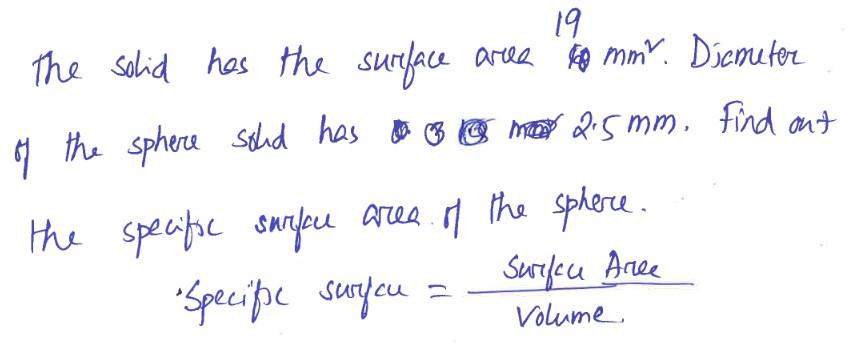 19
The solid has the surface area mm². Diameter
of the sphere solid has 2.5 mm. Find out
the specific surface area of the sphere.
Specific surface = Surface Area
Volume.